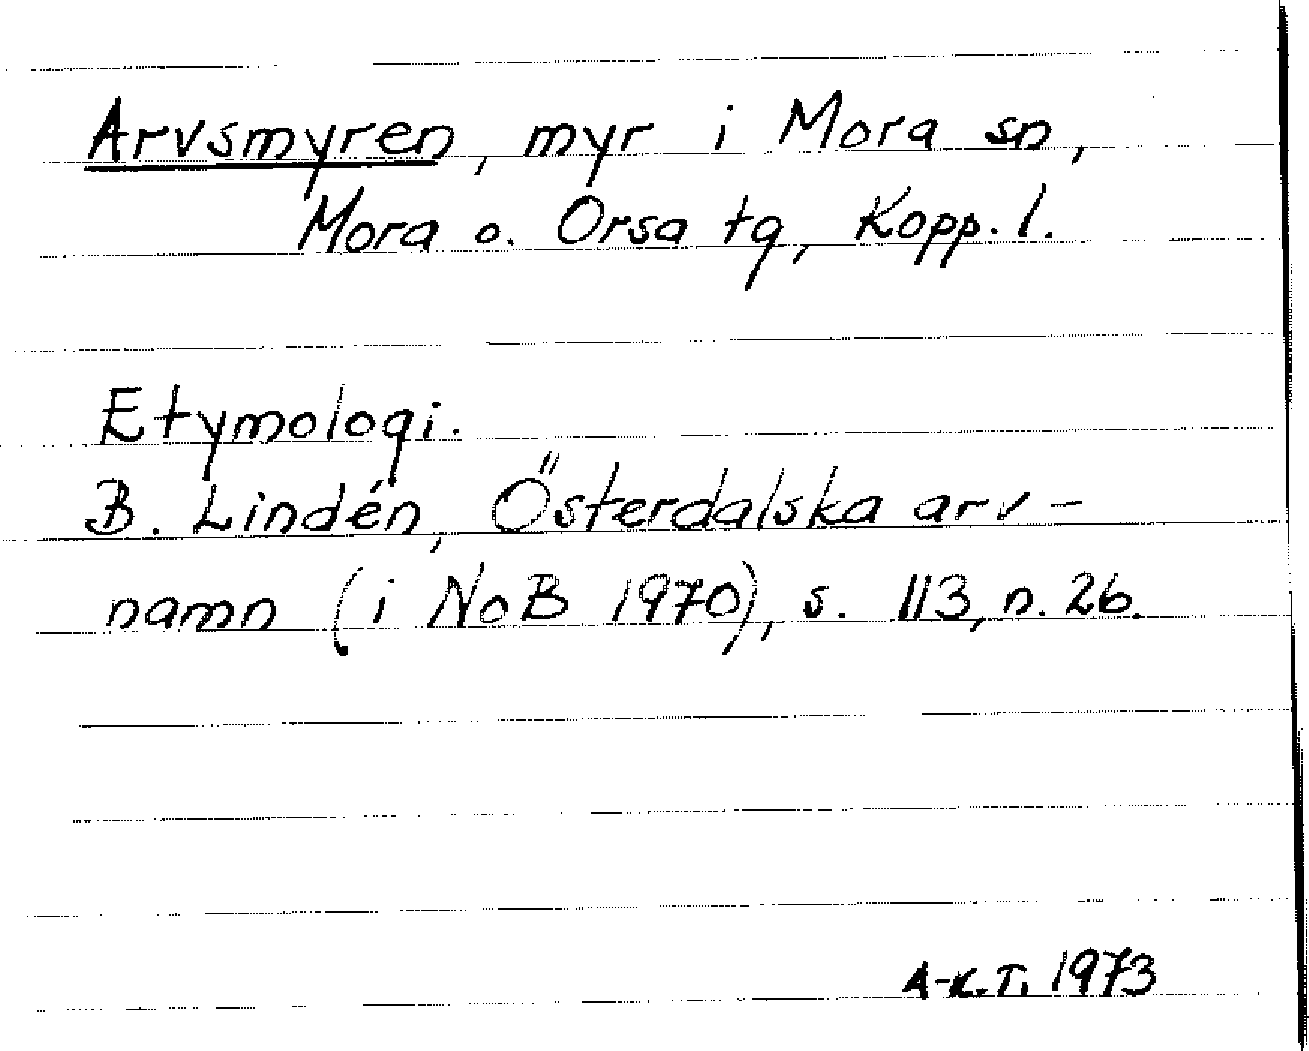 Arvsmyren, myr i Mora sn,
Mora o. Orsa tg, Kopp. l.
Etymologi.
B. Lindén, Österdalska arv-
namn (i NoB 1970), s. 113, n. 26.
A-K.T. 1973